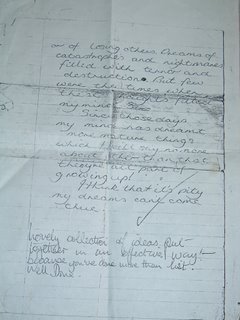 or of losing others. Dreams of
catastrophes and nightmares
filled with terror and
destruction. But few
were the times when
filled
my mind.
Since those days
my mind has dreamt
more mature things
which I
about other than that
growing up!
I think that it's pity
my dreams can't come
true.
Lovely collection of ideas. Put
together in an effective way!-
because you've done more than list.
Well done.